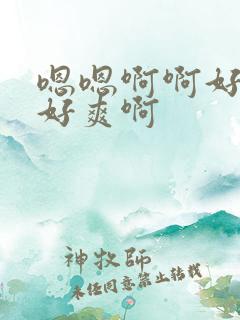 嗯嗯啊啊好
好爽啊
神牧师
未经同意禁止转载